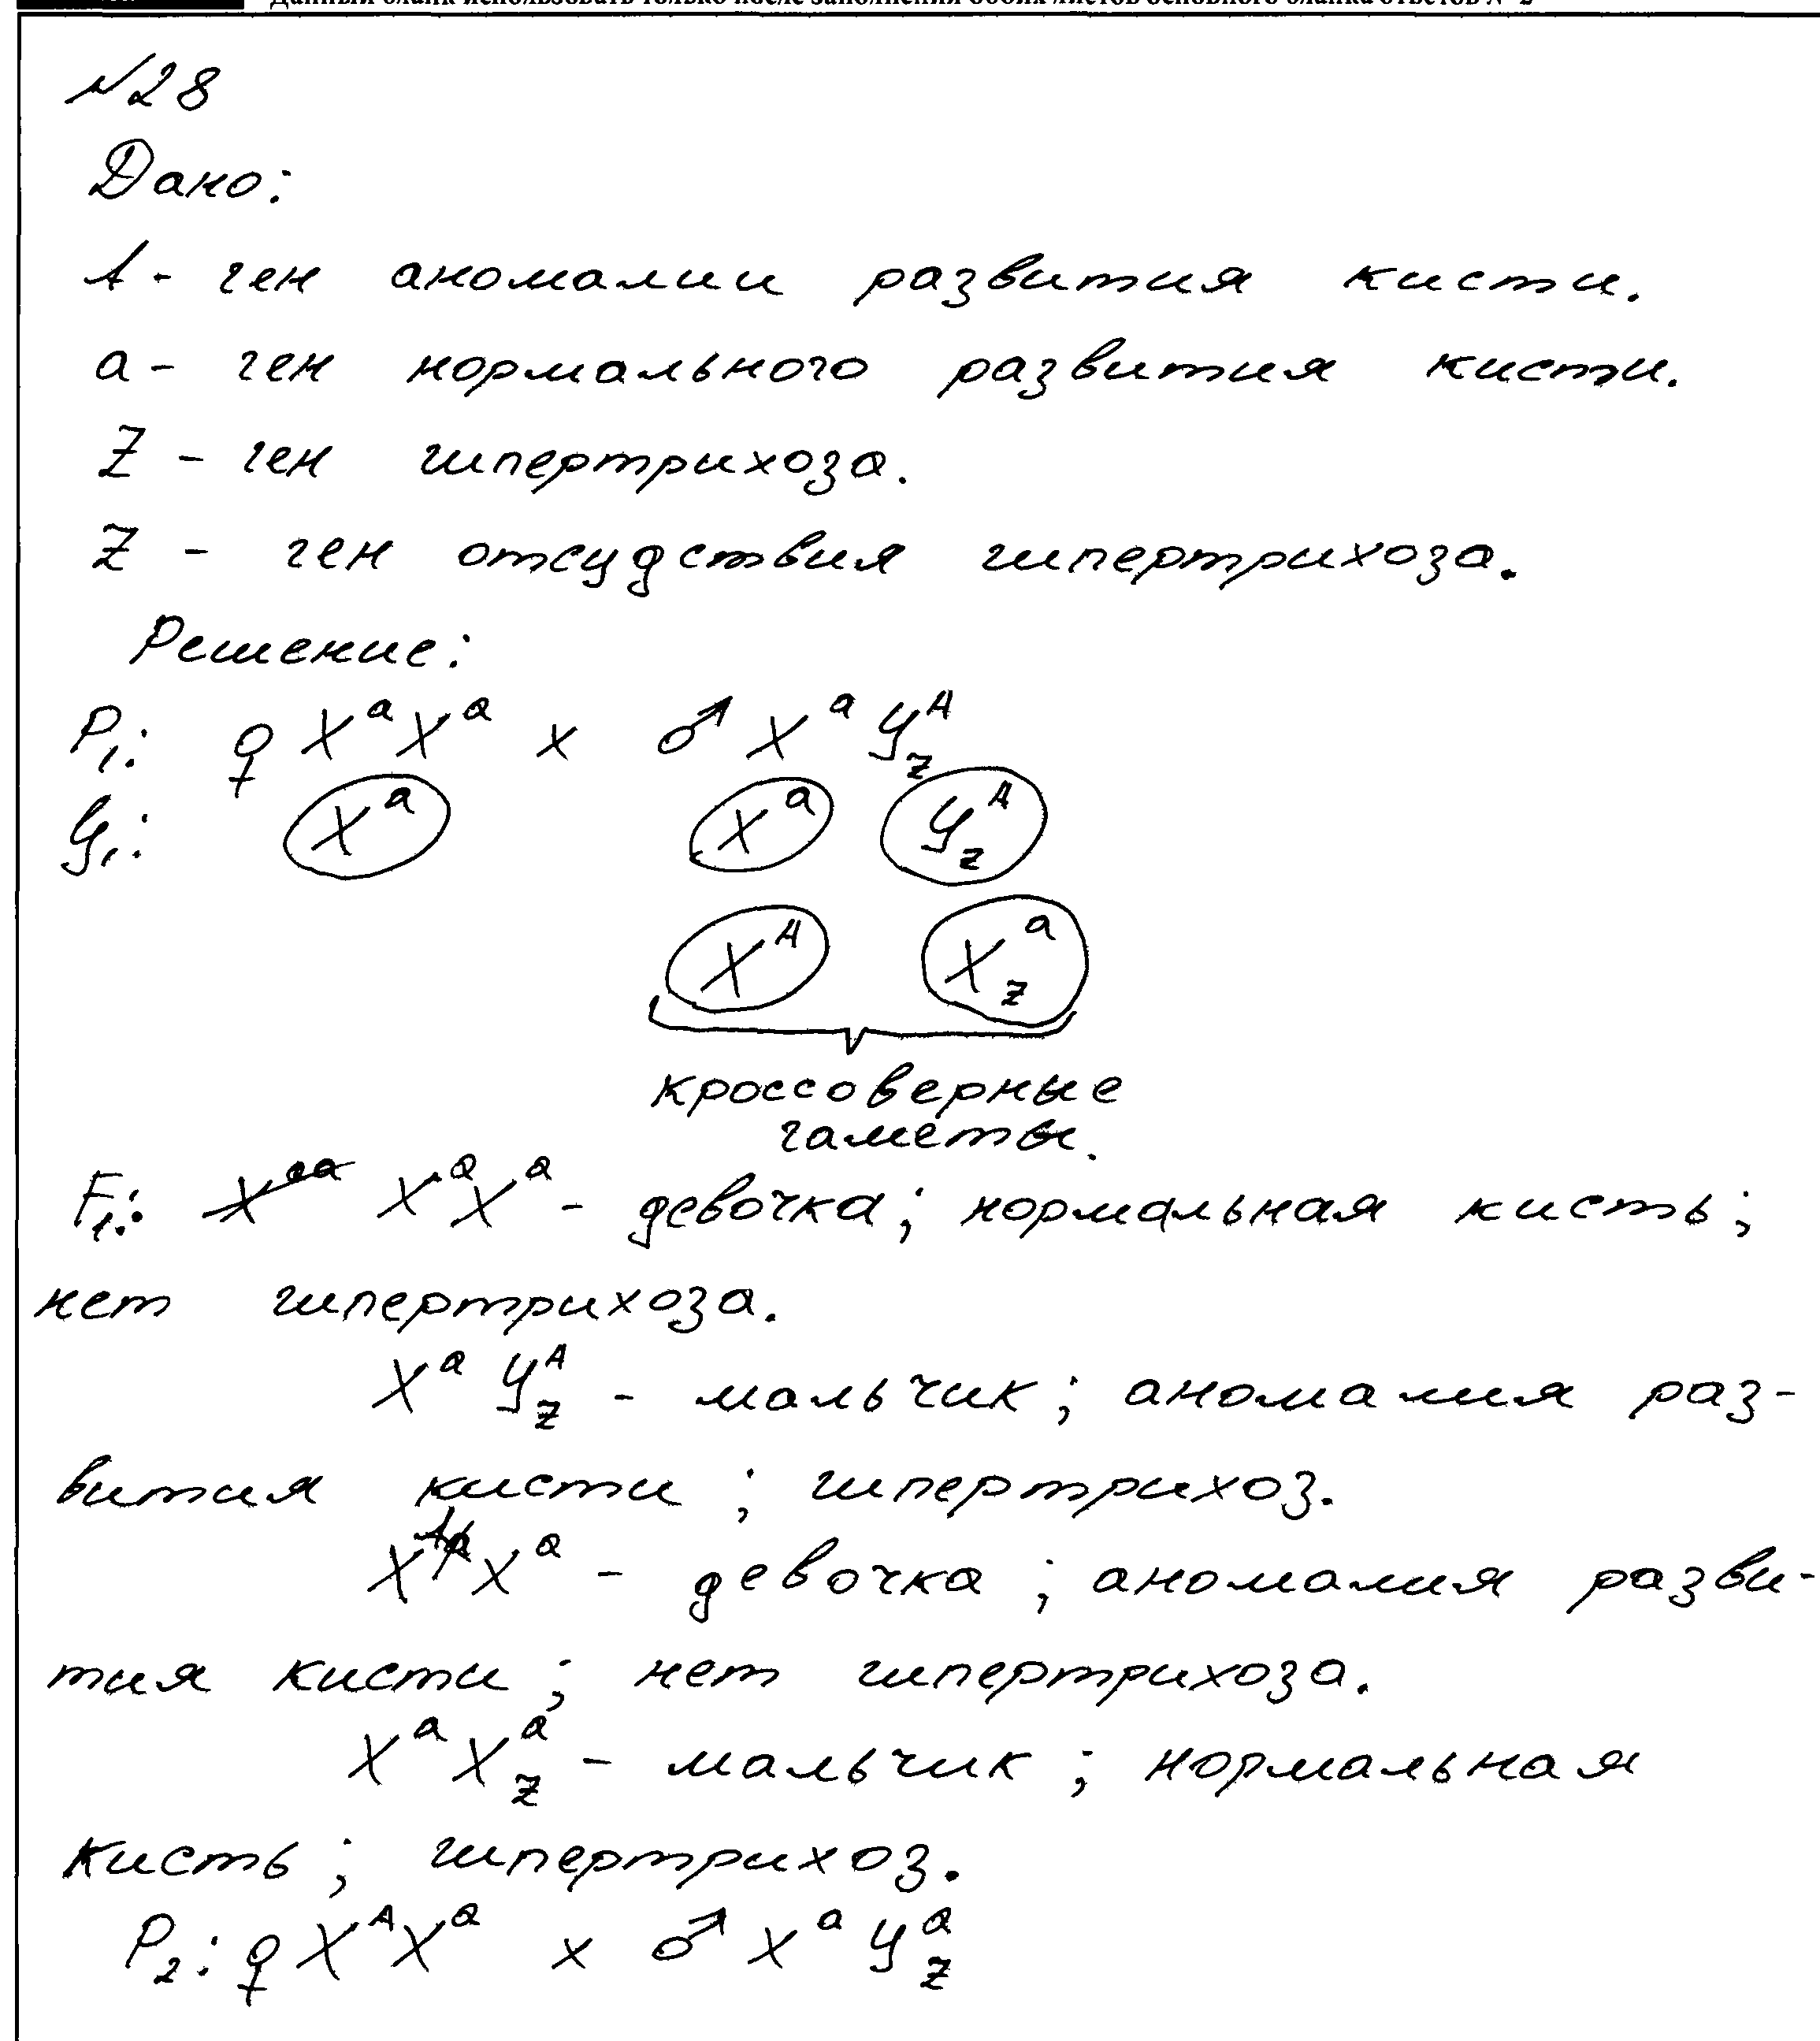 Данный бланк использовать только после заполнения обоих листов основного бланка ответов № 2
№28
Дано:
A - ген аномалии развития кисти.
a - ген нормального развития кисти.
Z - ген гипертрихоза.
Z - ген отсудствия гипертрихоза.
Решение:
P₁: ♀ XᵃXᵃ x ♂ Xᵃ Y_Z^A
G₁: Xᵃ Xᵃ Y_Z^A
X^A X_Z^a
кроссоверные
гаметы.
F₁: XᵃXᵃ - девочка; нормальная кисть;
нет гипертрихоза.
Xᵃ Y_Z^A - мальчик; аномалия раз-
вития кисти; гипертрихоз.
X^A Xᵃ - девочка; аномалия разви-
тия кисти; нет гипертрихоза.
Xᵃ X_Z^a - мальчик; нормальная
кисть; гипертрихоз.
P₂: ♀ X^A Xᵃ x ♂ Xᵃ Y_Z^a